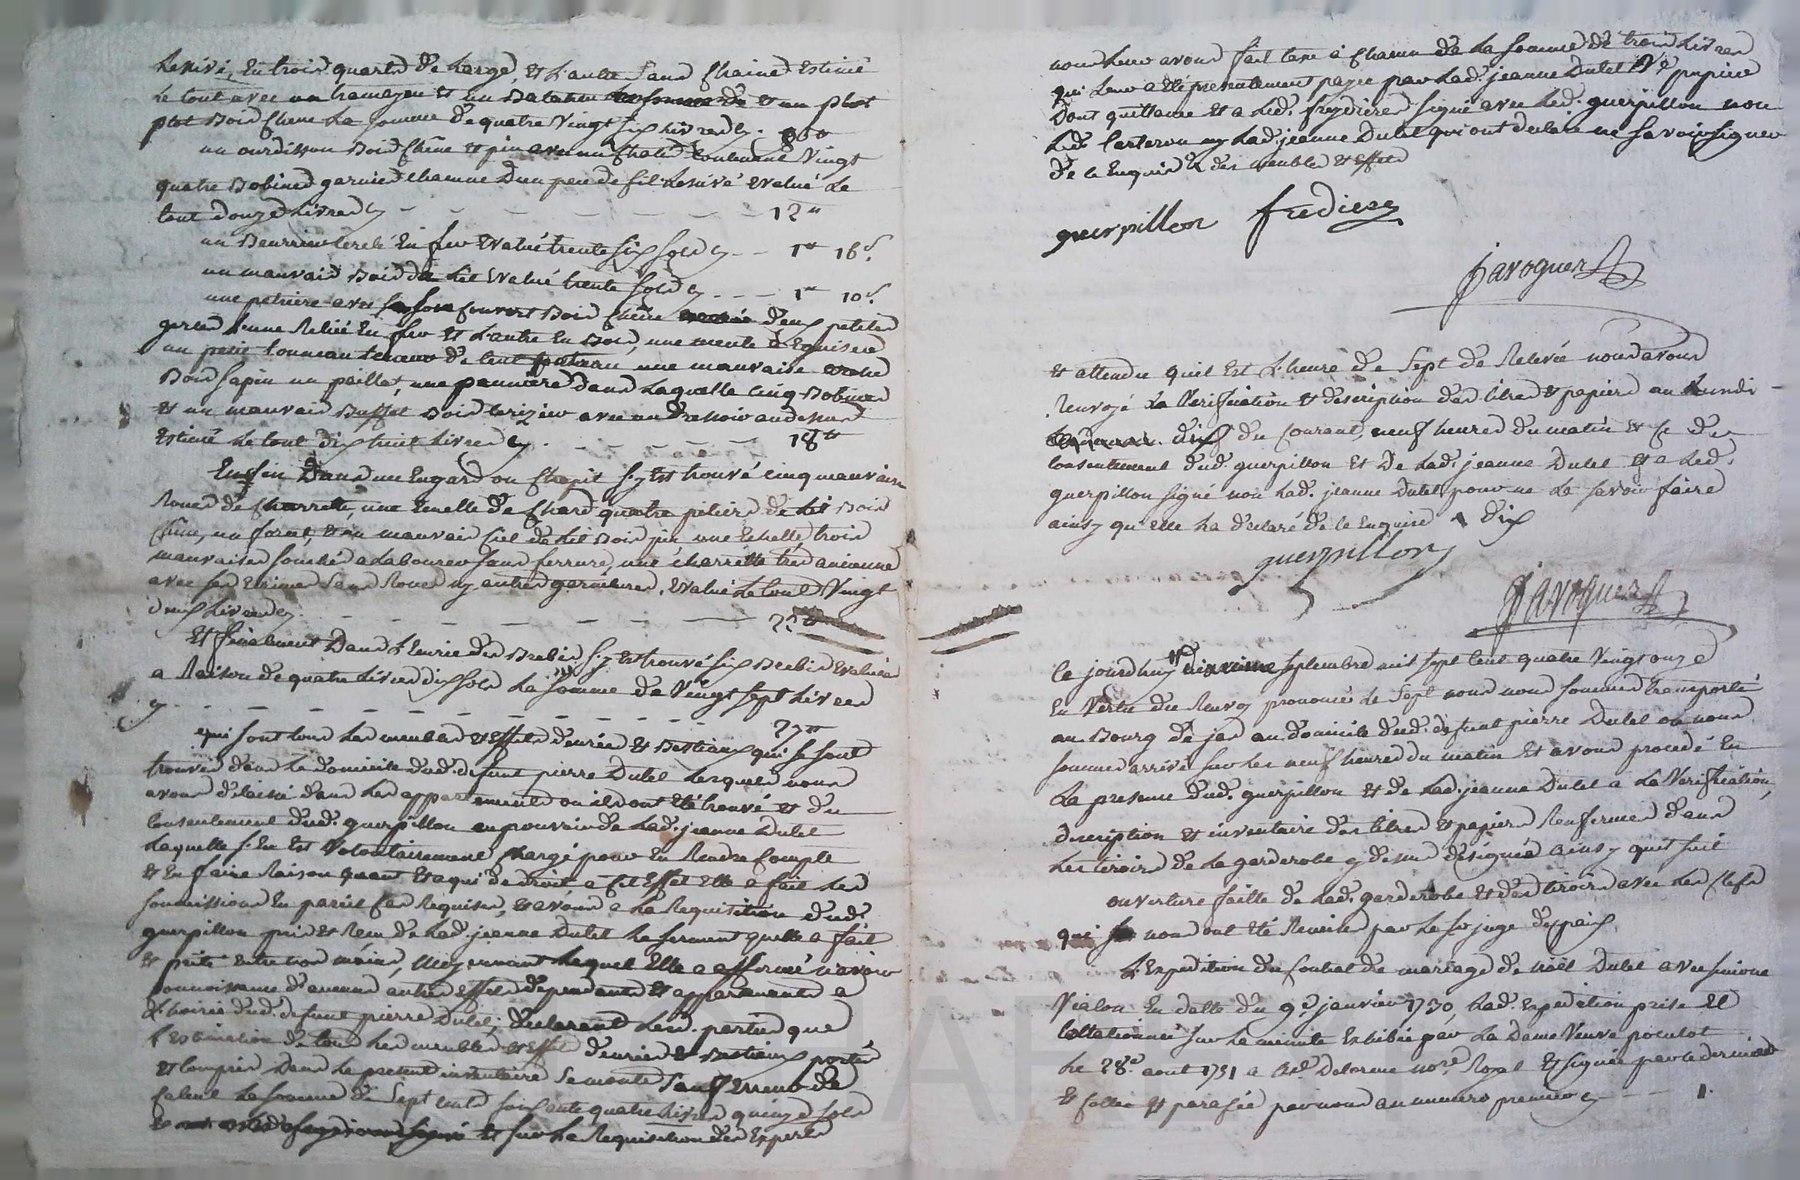 Lessivé, En trois quarts de large, et L'autre sans Chaines Estimé
Le tout avec un et un et un plot
plot Bois Chene La somme de quatre Vingt six Livres cy . 86tt
un ourdissou Bois Chene et pin avec un Contenant Vingt
quatre Bobines garnies chacune d'un peu de fil Lessivé Evalué Le
tout douze Livres cy 12tt
un Beurrier Cerclé En fer Evalué trente six sols cy 1tt 16s.
un mauvais Bois de Lit Evalué trente sols cy 1tt 10s.
une petriere avec son Couvert Bois Chene deux petites
gerles L'une Reliée En fer et L'autre En Bois, une meule a Eguiser
un petit tonneau de une mauvaise
Bois sapin un paillat, une panniere dans Laquelle cinq Bobines
et un mauvais Buffet Bois Cerizier avec un au dessus
Estimé Le tout dix huit Livres cy 18tt
Enfin Dans un Engard ou Chapit s'y Est trouvé cinq mauvaises
Roues de Charrette, une de Chard quatre piliers de Lit Bois
Chene, un mauvais Ciel de Lit Bois pin une Echelle, trois
mauvaises a Labourer sans ferrure, une charrette très ancienne
avec ses sans Roues ny autres garnitures, Evalué Le tout Vingt
deux Livres cy 22tt
Et finalement Dans L'Ecurie des Brebis s'y Est trouvé six Brebis Evaluées
a Raison de quatre Livres dix sols La somme de Vingt sept Livres
cy 27tt
qui sont tous Les meubles et Effets denrées et Bestiaux qui se sont
trouvés dans Le domicile dud. defunt pierre Dutel Lesquels nous
avons delaissé dans Les appartements ou ils ont Eté trouvés et du
Consentement dud. guerpillon au pouvoir de Lad. jeanne Dutel
Laquelle s'En Est Volontairement Chargé pour En Rendre Compte
et En faire Raison quant Et a qui de droit, a Cet Effet Elle a fait Les
soumissions En pareil Cas Requises, et avons a La Requisition dud.
guerpillon pris et Reçu de Lad. jeanne Dutel Le serment quelle a fait
et prêté Entre nos mains, Moyennant Lequel Elle a affirmé n'avoir
Connoissance d'aucuns autres Effets dependants et appartenants a
L'hoirie dud. defunt pierre Dutel, declarant Lesd. parties que
L'Estimation de tous Les meubles et Effets denrées et Bestiaux portés
et Compris Dans Le present inventaire Se monte Sauf Erreur de
Calcul La somme de Sept cents soixante quatre Livres quinze sols
Et et sur La Requisition des Experts
nous Leur avons fait taxe a Chacun de La somme de trois Livres
qui Leur a été presentement payée par Lad. jeanne Dutel
Dont quittance et a Led. freydiere signé avec Led. guerpillon non
Led. Carteron ny Lad. jeanne Dutel qui ont declaré ne savoir signer
de ce Enquis des meubles et Effets
guerpillon frediere
Javogues
Et attendu quil Est L'heure de Sept de Relevée nous avons
Renvoyé La Verification et description des titres et papiers au Lundi
dix du Courant, neuf heures du matin et Ce du
Consentement dud. guerpillon et De Lad. jeanne Dutel et a Led.
guerpillon signé non Lad. jeanne Dutel pour ne Le savoir faire
ainsy qu'elle La declaré de ce Enquise dix
guerpillon
Javogues
Ce jourdhuy septembre mil sept cent quatre Vingt onze
En Vertu du Renvoy prononcé Le Sept nous nous sommes transporté
au Bourg de jas au domicile dud. defunt pierre Dutel ou nous
sommes arrivés sur Les neuf heures du matin et avons procedé En
La presence dud. guerpillon et de Lad. jeanne Dutel a La Verification,
description et inventaire des titres et papiers Renfermés dans
Les tiroirs de La garderobe cy dessus designée ainsy quil suit
ouverture faitte de Lad. garderobe et des tiroirs avec Les Clefs
qui nous ont été Remises par Le sr juge de paix
L'Expedition du Contrat de mariage de noël Dutel avec simone
Vialon En datte du 9e janvier 1730 Lad. Expedition prise et
Collationnée sur La minute Exhibée par La Dame Veuve
Le 28e aout 1751 a Delorme nore Royal et signée par ce dernier
et Cottée et parafée par nous au numero premier cy 1.